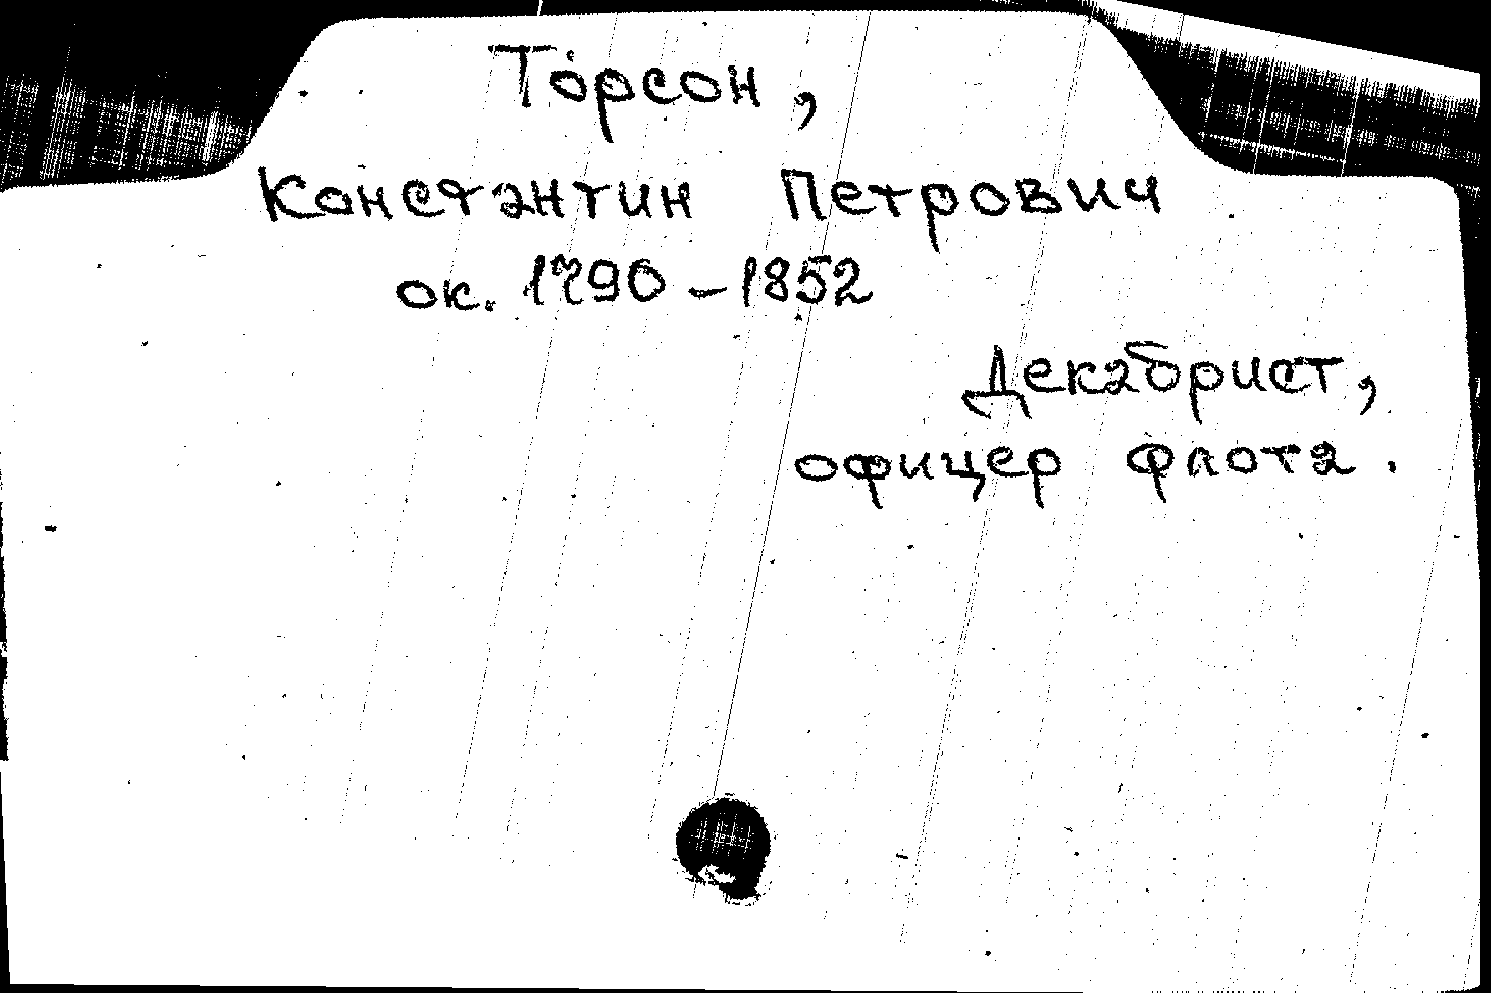 Торсон,
Константин Петрович
ок. 1790 – 1852
Декабрист,
офицер флота.